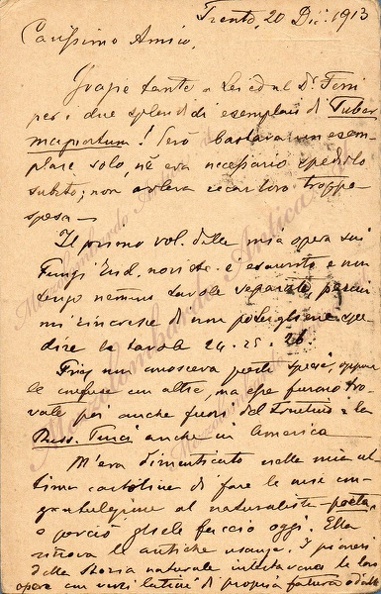 Trento, 20 Dic. 1913
Carissimo Amico,
Grazie tante a Lei ed al Dr. Ferri
per i due splendidi esemplari di Tuber
! Però bastava un esem-
plare solo, nè era necessario spedirlo
subito; non voleva recar loro troppa
spesa—
Il primo vol. della mia opera sui
Fungi è esaurito e non
tengo nemmeno tavole separate, perciò
mi rincresce di non potergliene spe-
dire le tavole 24. 25. 26.
Fries non conosceva queste specie, oppure
le confuse con altre, ma che furono tro-
vate poi anche fuori del Trentino e la
Russ. anche in America
M'era dimenticato nella mia ul-
tima cartolina di fare le mie con-
gratulazioni al naturalista-poeta
e perciò gliele faccio oggi. Ella
rinova le antiche usanze. I pionieri
della storia naturale le loro
opere con versi latini di propria fattura o delle